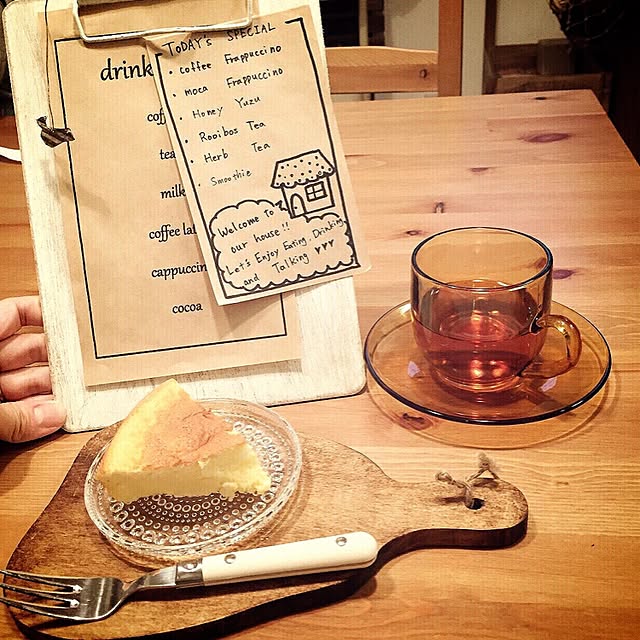 drink
cof
tea
milk
coffee lat
cappuccin
cocoa
TODAY's SPECIAL
• coffee Frappuccino
• moca Frappuccino
• Honey Yuzu
• Rooibos Tea
• Herb Tea
• Smoothie
Welcome to
our house!!
Let's Enjoy Eating, Drinking
and Talking ♥♥♥